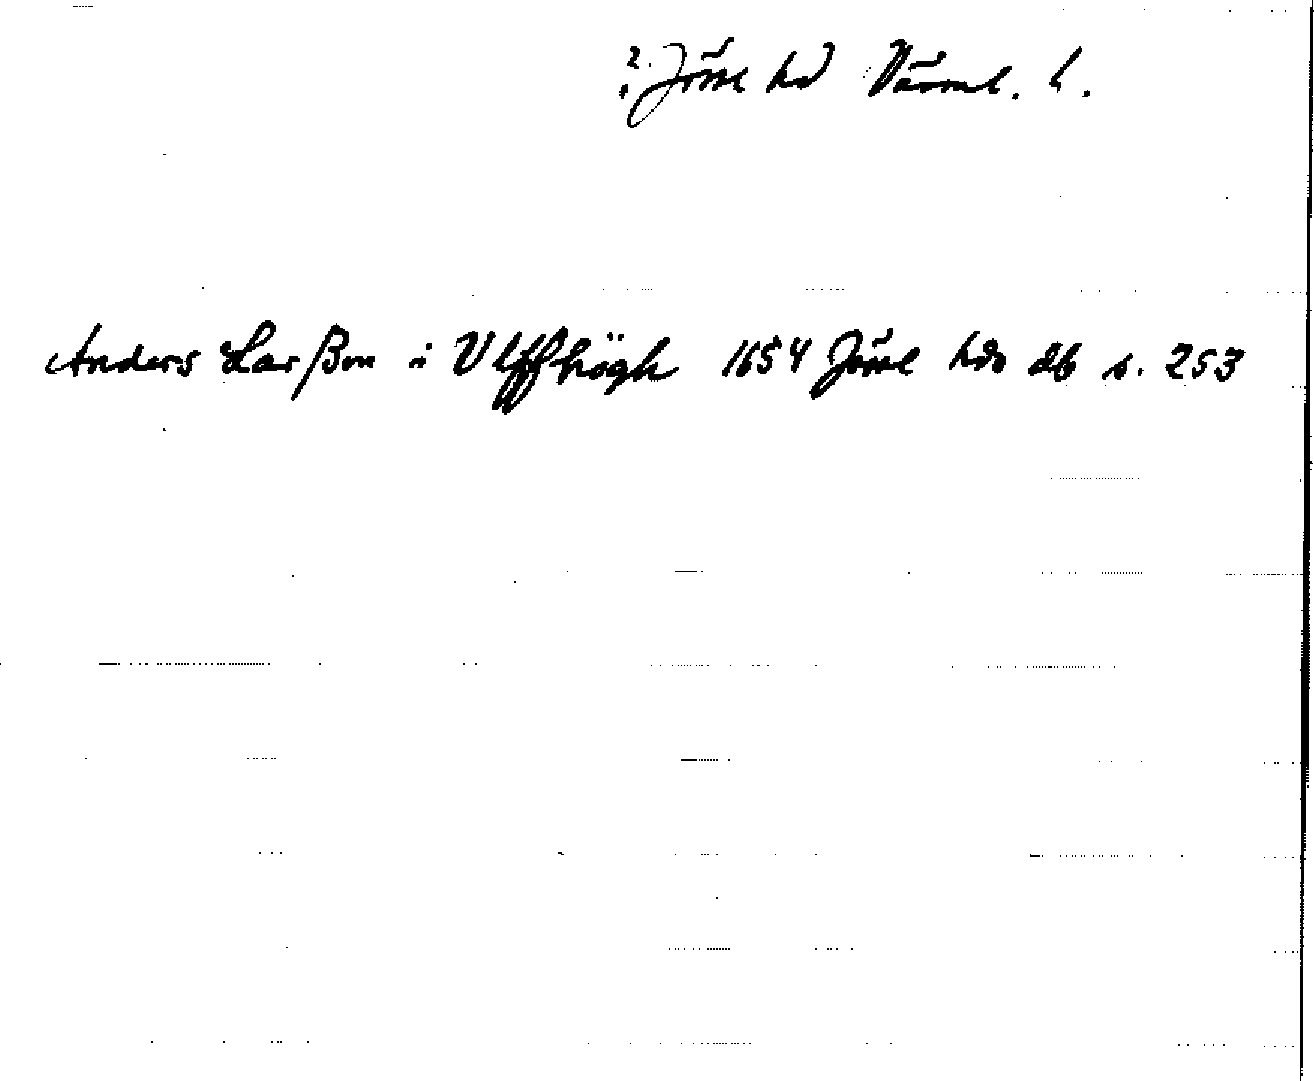 ? Jösse hd Värml. l.
Anders Larßon i Ulffhögh 1654 Jösse hds db s. 253